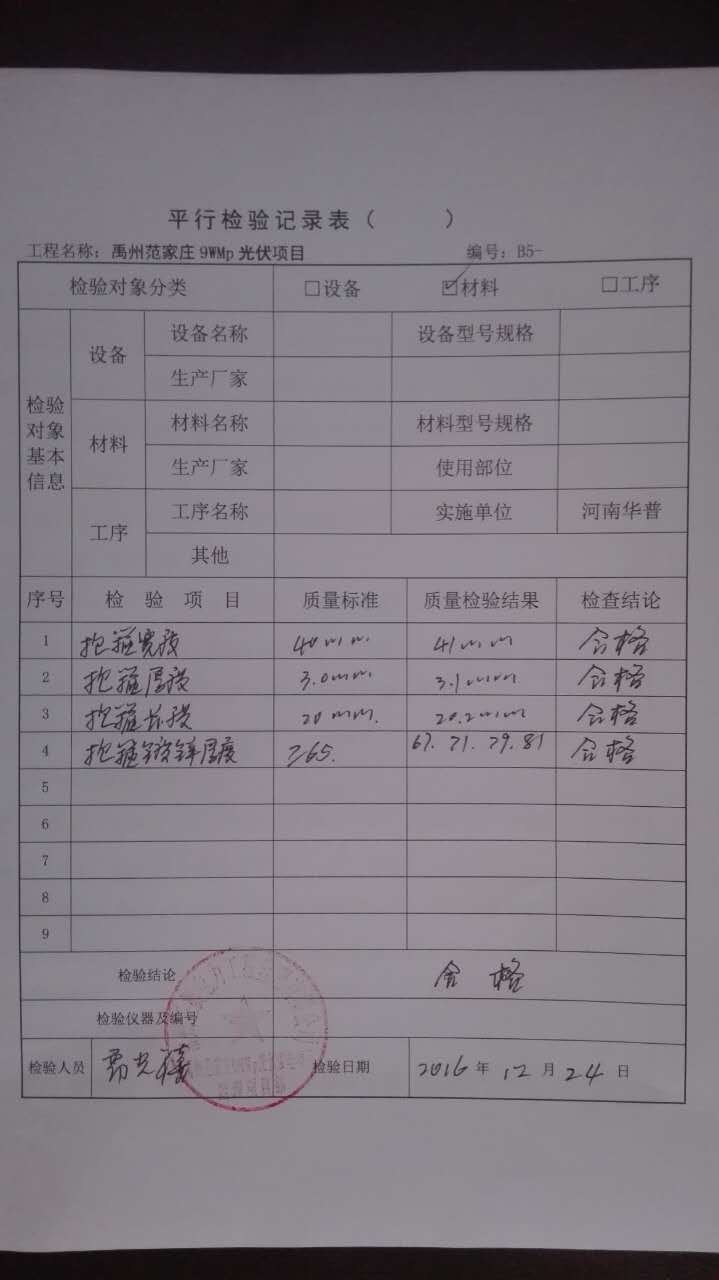 平行检验记录表（ ）
工程名称：禹州范家庄9WMp光伏项目 编号：B5-
检验对象分类 □设备 ☑材料 □工序
检验对象基本信息
设备 设备名称 设备型号规格
生产厂家
材料 材料名称 材料型号规格
生产厂家 使用部位
工序 工序名称 实施单位 河南华普
其他
序号 检验项目 质量标准 质量检验结果 检查结论
1 抱箍宽度 40mm. 41mm 合格
2 抱箍厚度 3.0mm. 3.1mm 合格
3 抱箍长度 20mm. 20.2mm 合格
4 抱箍镀锌厚度 ≥65. 67. 71. 79. 81 合格
5
6
7
8
9
检验结论 合格
检验仪器及编号
检验人员 检验日期 2016年12月24日